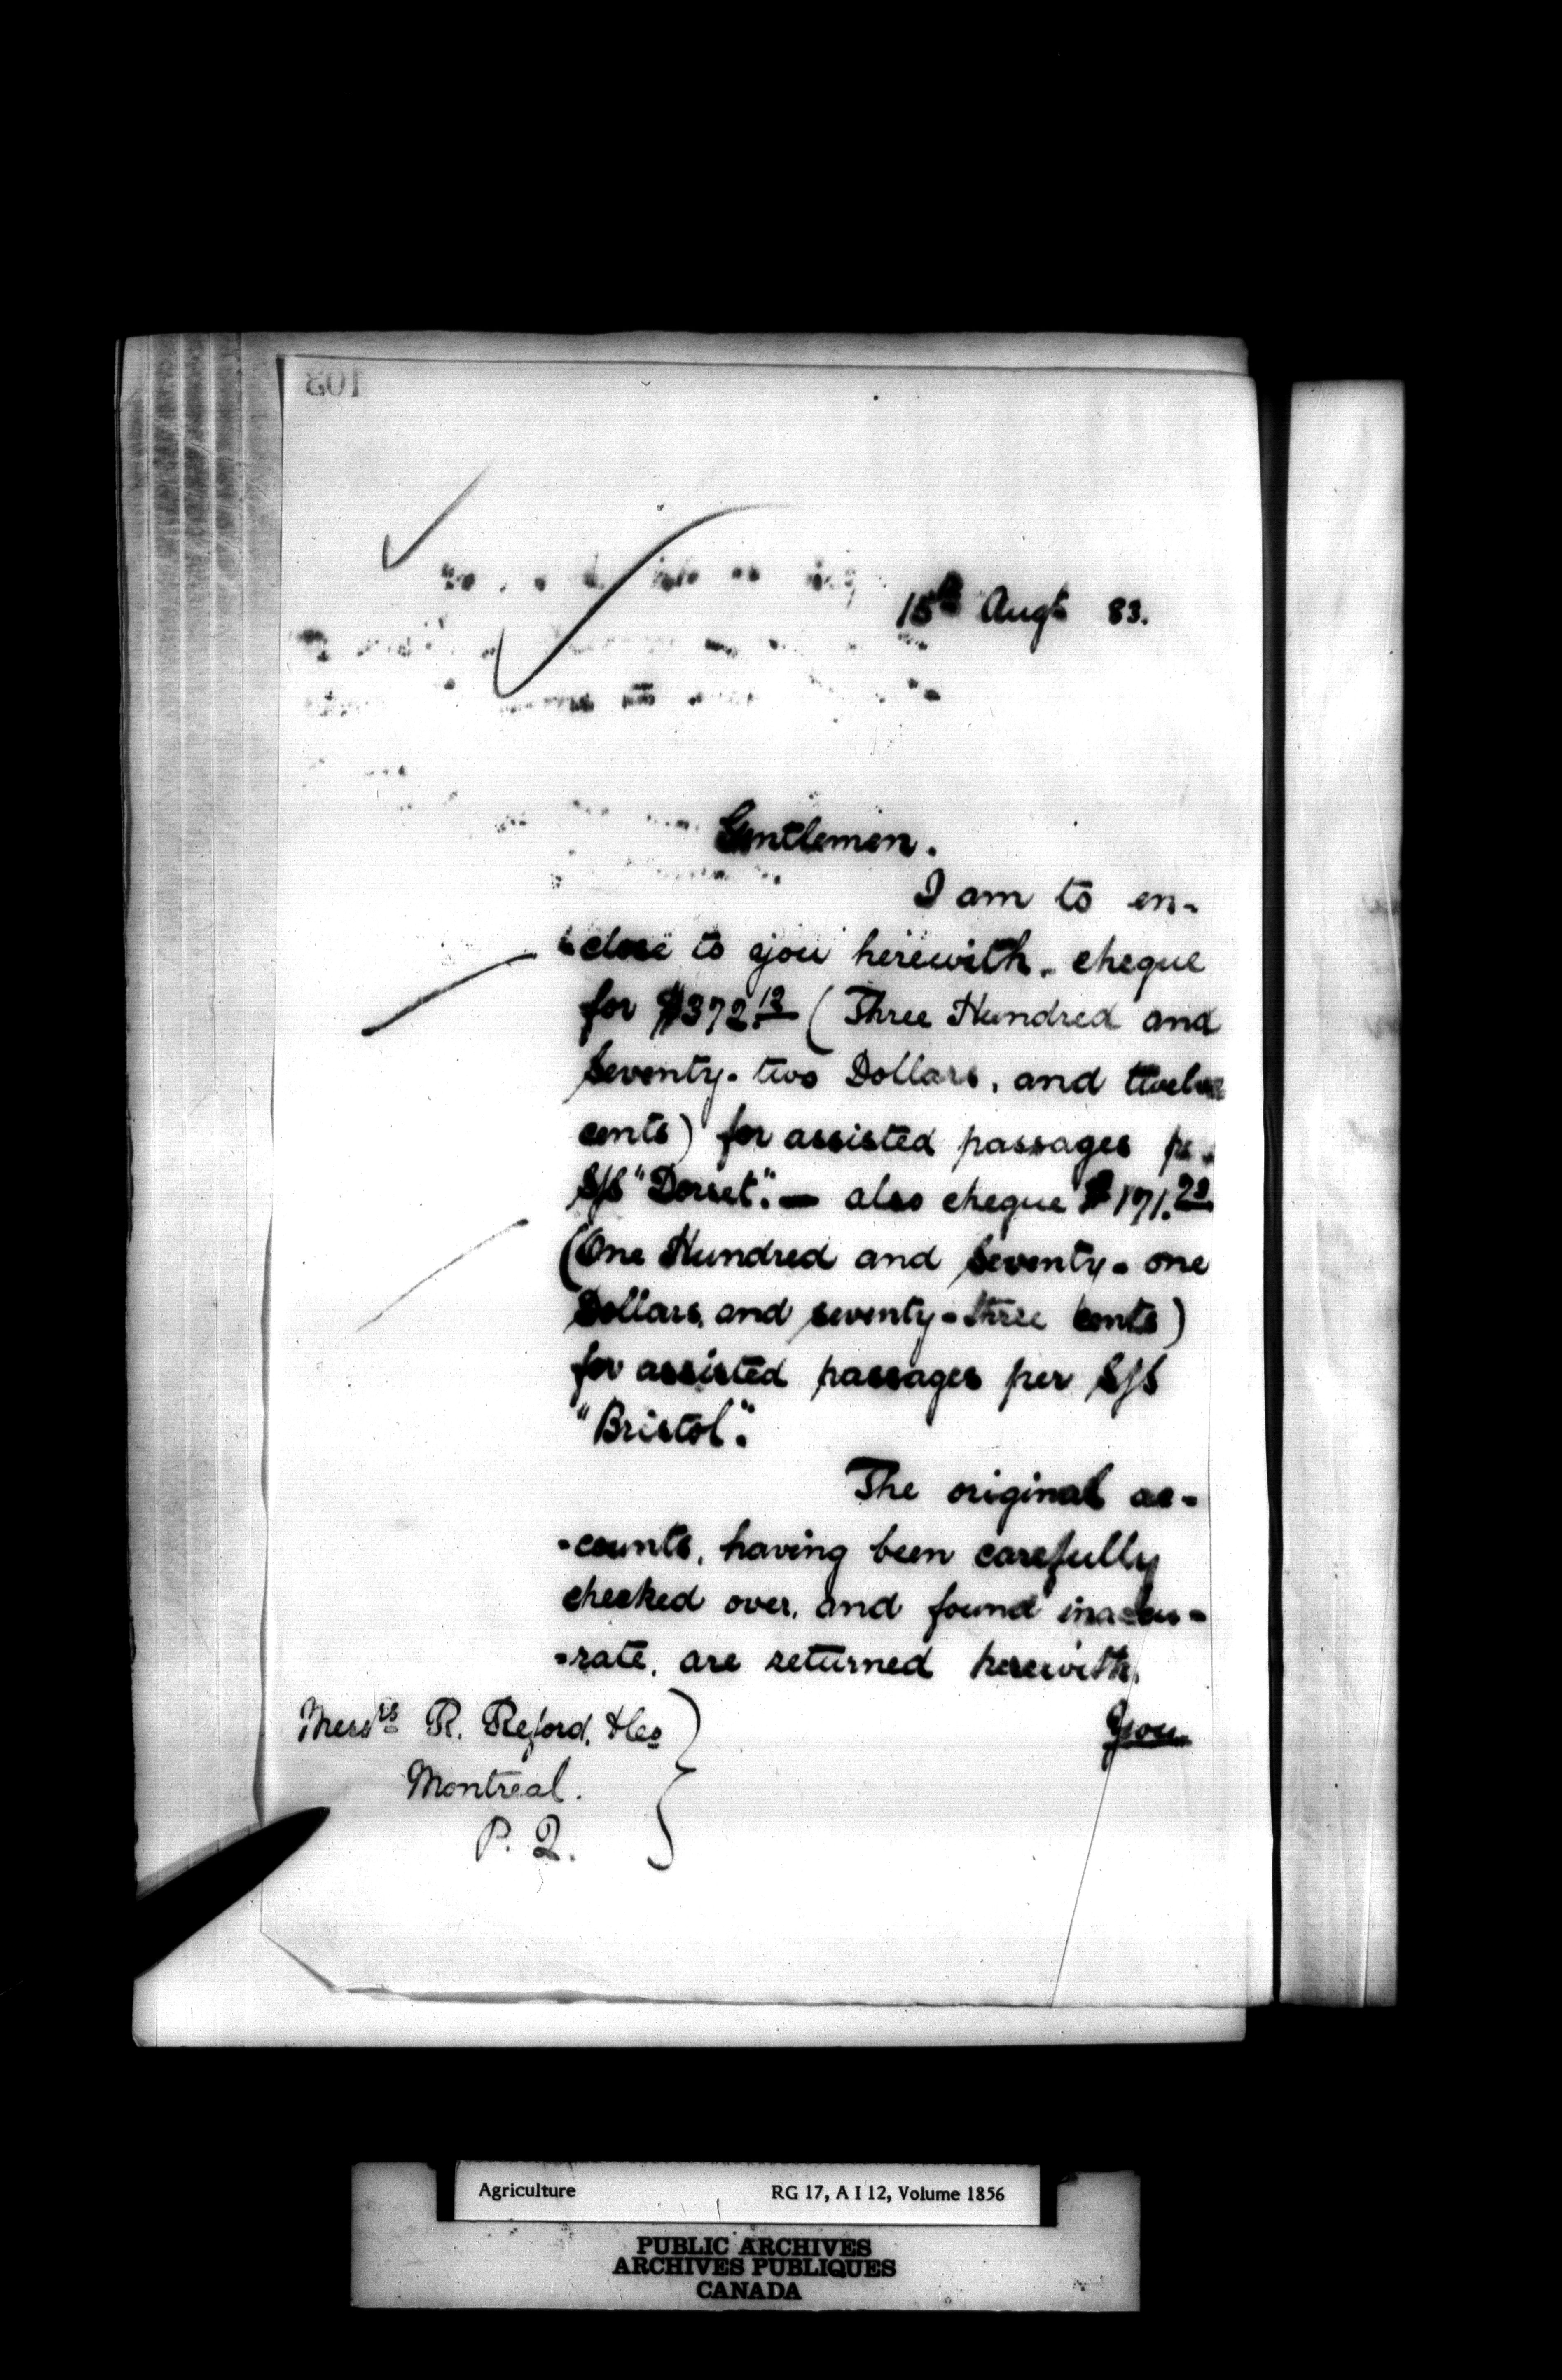 15th Augt 83.
Gentlemen.
I am to en-
-close to you herewith. cheque
for $372.12 (Three Hundred and
Seventy-two Dollars, and twelve
cents) for assisted passages pr.
S/S "Dorset". — also cheque $171.73
(One Hundred and Seventy-one
Dollars, and seventy-three cents)
for assisted passages per S/S
"Bristol".
The original ac-
-counts, having been carefully
checked over, and found inaccu-
-rate, are returned herewith.
You
Messrs R. Reford, & Co
Montreal.
P. Q.
Agriculture RG 17, A I 12, Volume 1856
PUBLIC ARCHIVES
ARCHIVES PUBLIQUES
CANADA